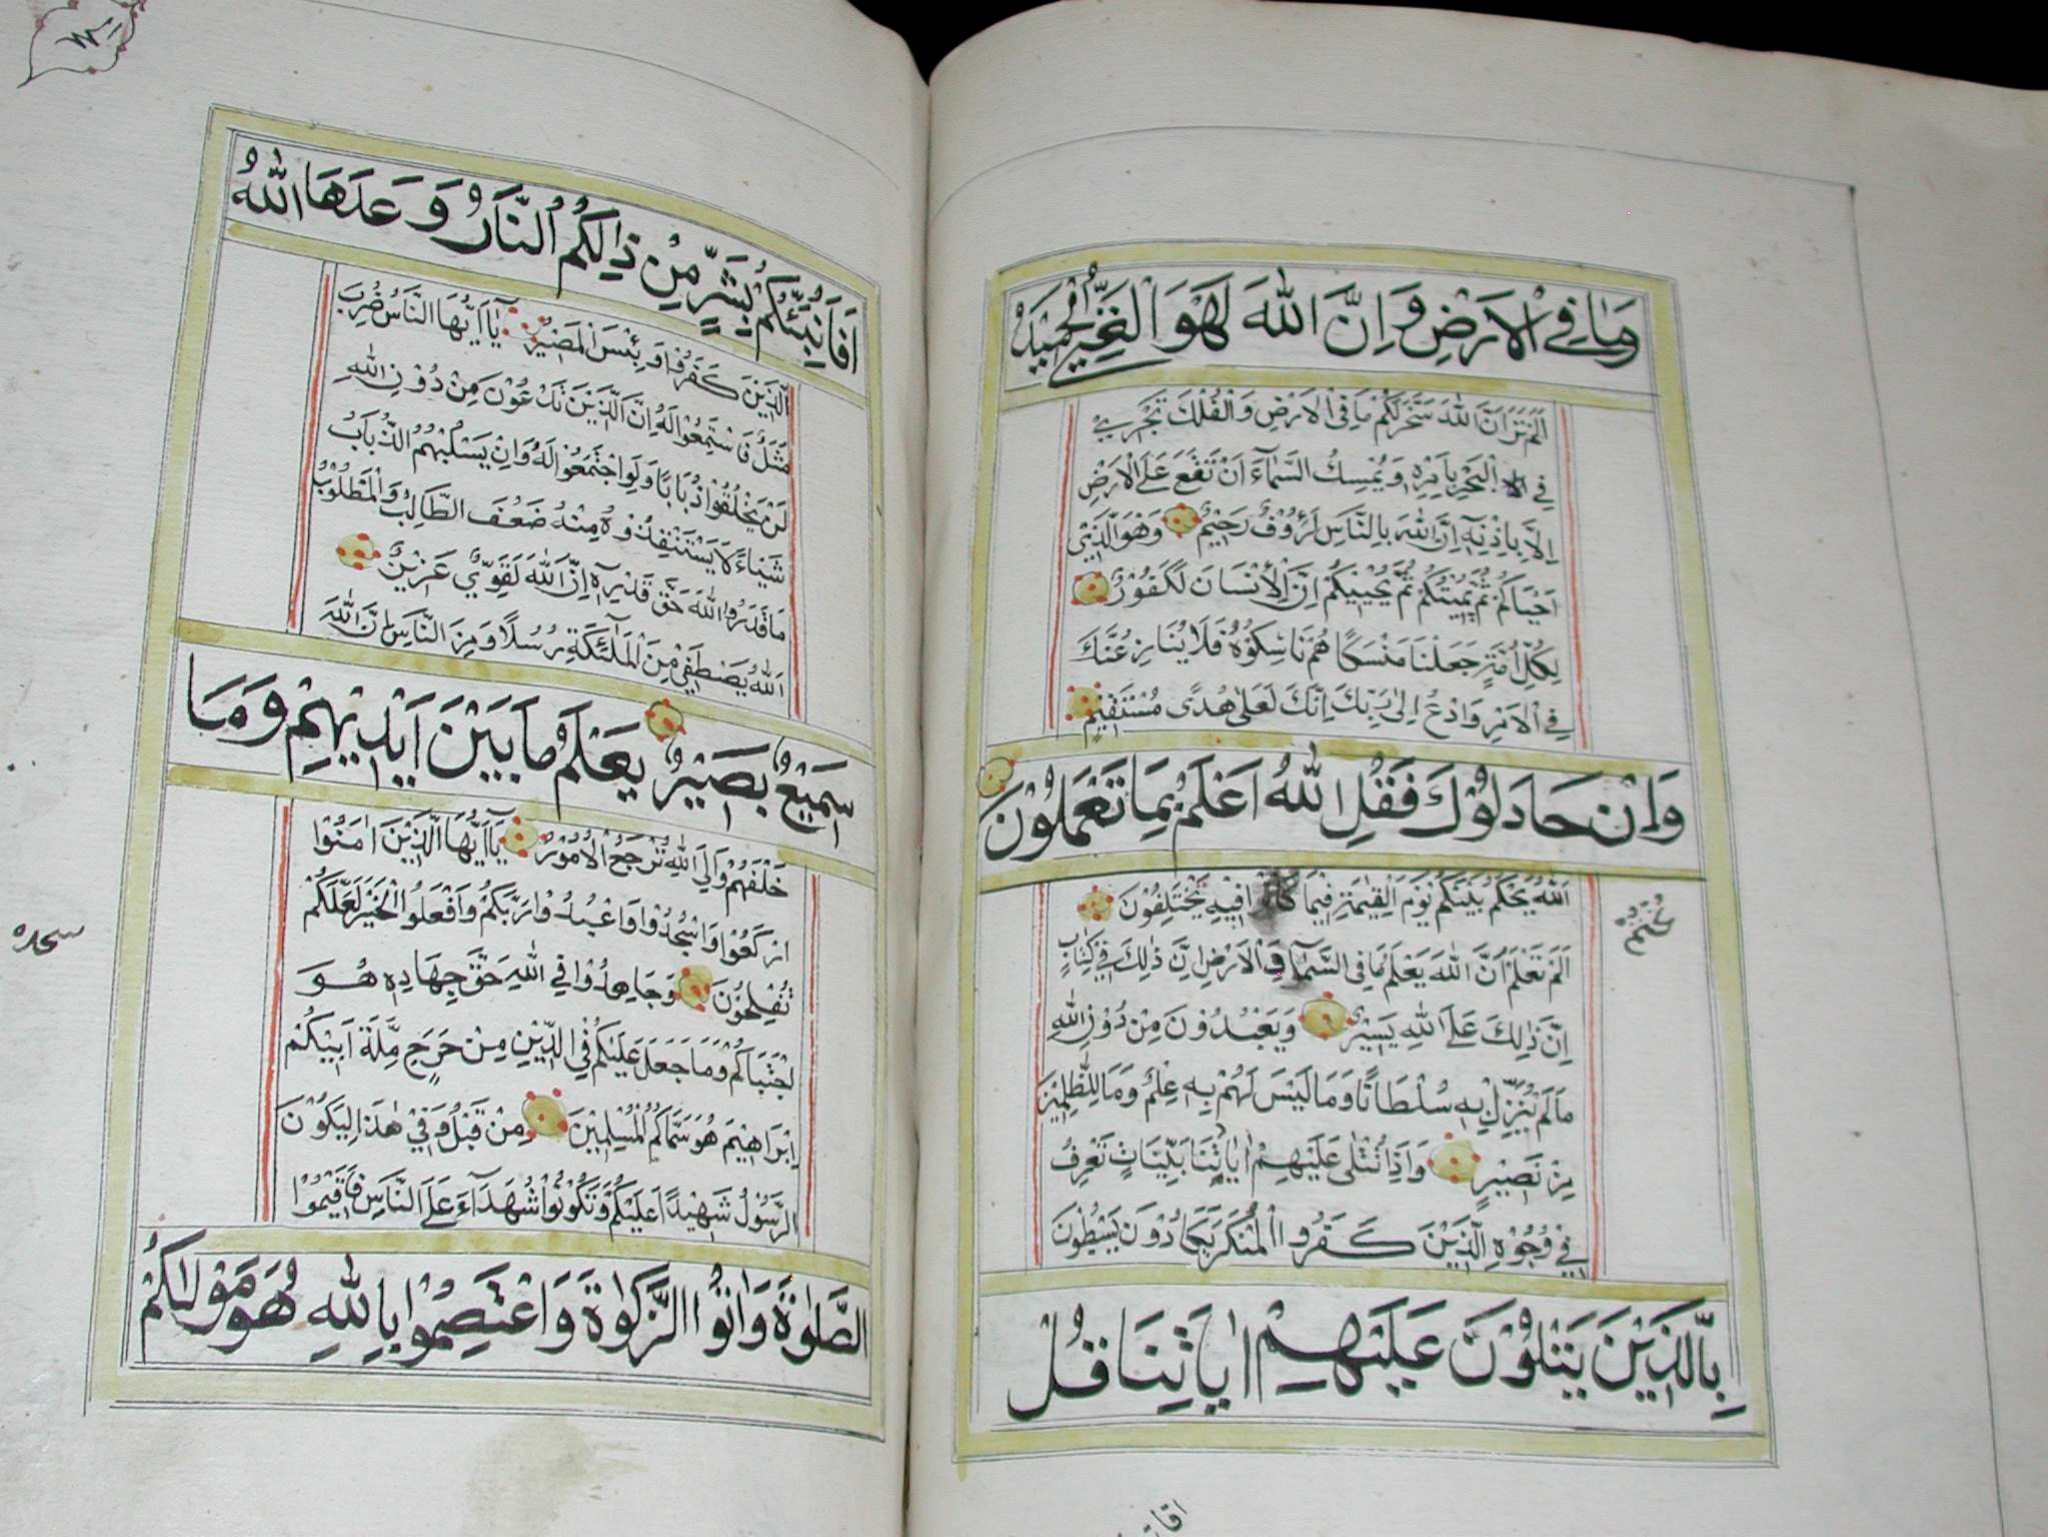 وَمَا فِي الْاَرْضِ وَاِنَّ اللّٰهَ لَهُوَ الْغَنِيُّ الْحَمِيْدُ
اَلَمْ تَرَ اَنَّ اللّٰهَ سَخَّرَ لَكُمْ مَا فِي الْاَرْضِ وَالْفُلْكَ تَجْرِيْ
فِي الْبَحْرِ بِاَمْرِهٖ وَيُمْسِكُ السَّمَآءَ اَنْ تَقَعَ عَلَى الْاَرْضِ
اِلَّا بِاِذْنِهٖ اِنَّ اللّٰهَ بِالنَّاسِ لَرَؤُوْفٌ رَحِيْمٌ وَهُوَ الَّذِيْ
اَحْيَاكُمْ ثُمَّ يُمِيْتُكُمْ ثُمَّ يُحْيِيْكُمْ اِنَّ الْاِنْسَانَ لَكَفُوْرٌ
لِكُلِّ اُمَّةٍ جَعَلْنَا مَنْسَكًا هُمْ نَاسِكُوْهُ فَلَا يُنَازِعُنَّكَ
فِي الْاَمْرِ وَادْعُ اِلٰى رَبِّكَ اِنَّكَ لَعَلٰى هُدًى مُسْتَقِيْمٍ
وَاِنْ جَادَلُوْكَ فَقُلِ اللّٰهُ اَعْلَمُ بِمَا تَعْمَلُوْنَ
اَللّٰهُ يَحْكُمُ بَيْنَكُمْ يَوْمَ الْقِيٰمَةِ فِيْمَا فِيْهِ تَخْتَلِفُوْنَ
كُنْتُمْ
اَلَمْ تَعْلَمْ اَنَّ اللّٰهَ يَعْلَمُ مَا فِي السَّمَآءِ وَالْاَرْضِ اِنَّ ذٰلِكَ فِيْ كِتَابٍ
اِنَّ ذٰلِكَ عَلَى اللّٰهِ يَسِيْرٌ وَيَعْبُدُوْنَ مِنْ دُوْنِ اللّٰهِ
مَا لَمْ يُنَزِّلْ بِهٖ سُلْطَانًا وَمَا لَيْسَ لَهُمْ بِهٖ عِلْمٌ وَمَا لِلظّٰلِمِيْنَ
مِنْ نَصِيْرٍ وَاِذَا تُتْلٰى عَلَيْهِمْ اٰيَاتُنَا بَيِّنَاتٍ تَعْرِفُ
فِيْ وُجُوْهِ الَّذِيْنَ كَفَرُوا الْمُنْكَرَ يَكَادُوْنَ يَسْطُوْنَ
بِالَّذِيْنَ يَتْلُوْنَ عَلَيْهِمْ اٰيَاتِنَا قُلْ
اَفَاُنَبِّئُكُمْ بِشَرٍّ مِنْ ذٰلِكُمُ النَّارُ وَعَدَهَا اللّٰهُ
الَّذِيْنَ كَفَرُوْا وَبِئْسَ الْمَصِيْرُ يَآ اَيُّهَا النَّاسُ ضُرِبَ
مَثَلٌ فَاسْتَمِعُوْا لَهُ اِنَّ الَّذِيْنَ تَدْعُوْنَ مِنْ دُوْنِ اللّٰهِ
لَنْ يَخْلُقُوْا ذُبَابًا وَلَوِ اجْتَمَعُوْا لَهُ وَاِنْ يَسْلُبْهُمُ الذُّبَابُ
شَيْئًا لَا يَسْتَنْقِذُوْهُ مِنْهُ ضَعُفَ الطَّالِبُ وَالْمَطْلُوْبُ
مَا قَدَرُوا اللّٰهَ حَقَّ قَدْرِهٖ اِنَّ اللّٰهَ لَقَوِيٌّ عَزِيْزٌ
اَللّٰهُ يَصْطَفِيْ مِنَ الْمَلٰٓئِكَةِ رُسُلًا وَمِنَ النَّاسِ اِنَّ اللّٰهَ
سَمِيْعٌ بَصِيْرٌ يَعْلَمُ مَا بَيْنَ اَيْدِيْهِمْ وَمَا
خَلْفَهُمْ وَاِلَى اللّٰهِ تُرْجَعُ الْاُمُوْرُ يَآ اَيُّهَا الَّذِيْنَ اٰمَنُوْا
ارْكَعُوْا وَاسْجُدُوْا وَاعْبُدُوْا رَبَّكُمْ وَافْعَلُوا الْخَيْرَ لَعَلَّكُمْ
سجده
تُفْلِحُوْنَ وَجَاهِدُوْا فِي اللّٰهِ حَقَّ جِهَادِهٖ هُوَ
اجْتَبَاكُمْ وَمَا جَعَلَ عَلَيْكُمْ فِي الدِّيْنِ مِنْ حَرَجٍ مِلَّةَ اَبِيْكُمْ
اِبْرَاهِيْمَ هُوَ سَمَّاكُمُ الْمُسْلِمِيْنَ مِنْ قَبْلُ وَفِيْ هٰذَا لِيَكُوْنَ
الرَّسُوْلُ شَهِيْدًا عَلَيْكُمْ وَتَكُوْنُوْا شُهَدَآءَ عَلَى النَّاسِ فَاَقِيْمُوْا
الصَّلٰوةَ وَاٰتُوا الزَّكٰوةَ وَاعْتَصِمُوْا بِاللّٰهِ هُوَ مَوْلٰىكُمْ